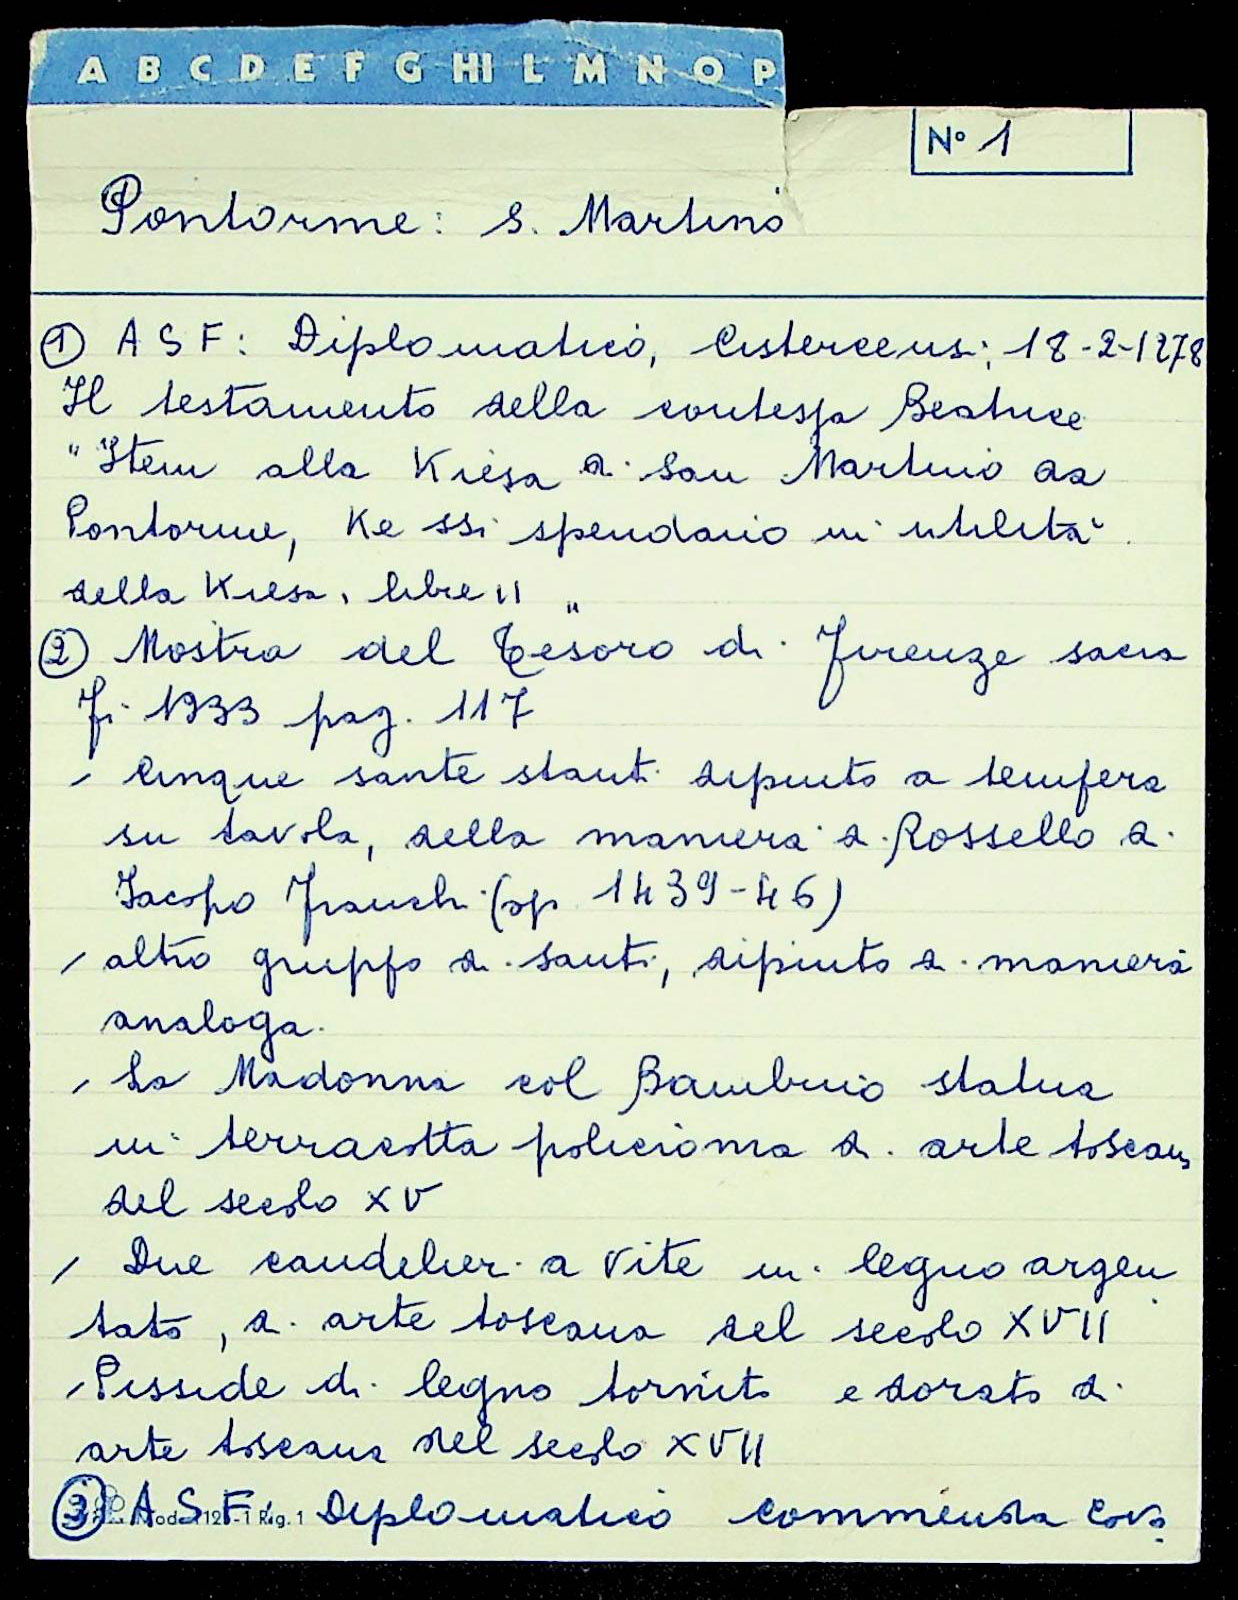 A B C D E F G HI L M N O P
N° 1
Pontorme: S. Martino
① A S F: Diplomatico, Cistercensi; 18-2-1278
Il testamento della contessa Beatrice
"Item alla Kiesa di San Martino da
Pontorme, Ke ssi spendano in utilità
della Kiesa, libre II "
② Mostra del Tesoro di Firenze sacra
Fi 1933 pag. 117
- Cinque sante stanti dipinto a tempera
su tavola, della maniera di Rossello di
Jacopo Franchi (op 1439-46)
- altro gruppo di santi, dipinto di maniera
analoga.
- La Madonna col Bambino statua
in terracotta policroma di arte toscana
del secolo XV
- Due candelieri a vite in legno argen
tato, di arte toscana del secolo XVII
- Pisside di legno tornito e dorato di
arte toscana del secolo XVII
③ A S F: Diplomatico commenda Cov?
Mod. 12 -1 Rig. 1